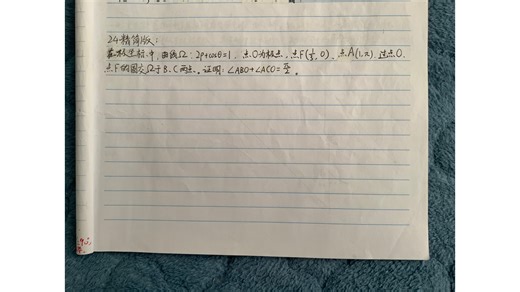 24精简版：
在极坐标中，曲线Ω：2ρ+cosθ=1，点O为极点，点F(1/3，0)，点A(1，π)，过点O、
点F的圆交Ω于B、C两点。证明：∠ABO+∠ACO=π/2。